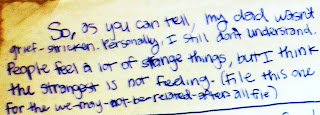 So, as you can tell, my dad wasn't
grief-stricken. Personally, I still don't understand.
People feel a lot of strange things, but I think
the strangest is not feeling. (File this one
for the we-may-not-be-related-after-all file)